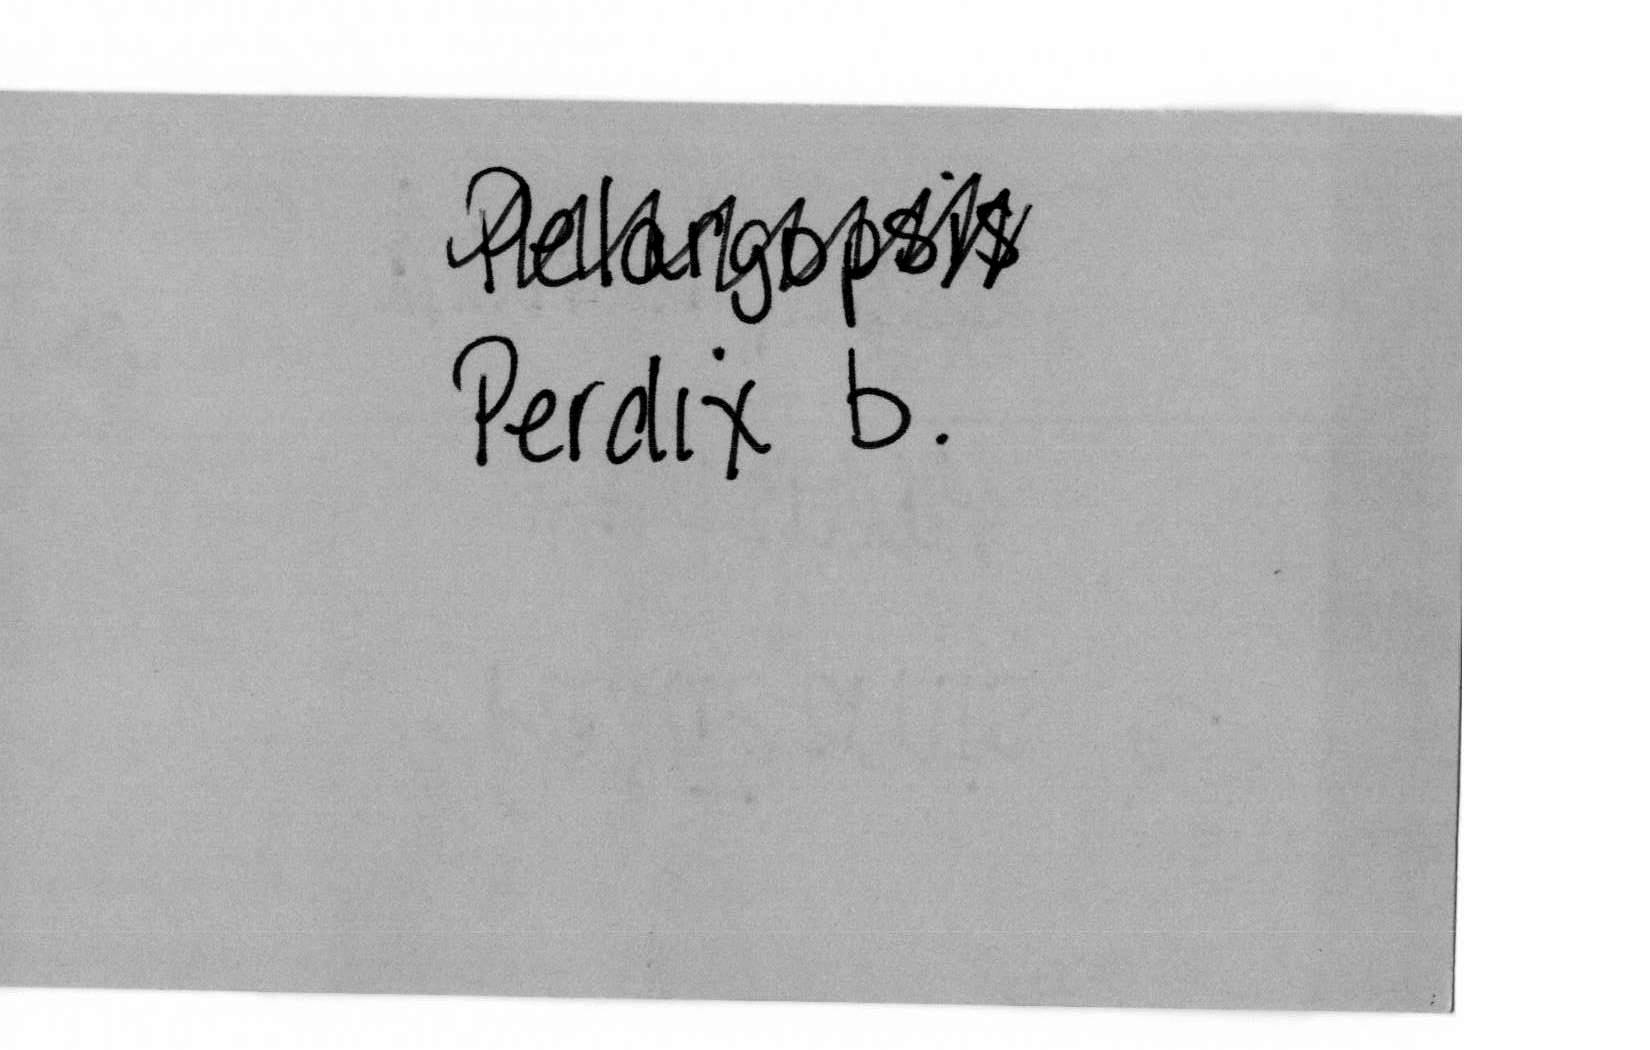 Pelargopsis
Perdix b.